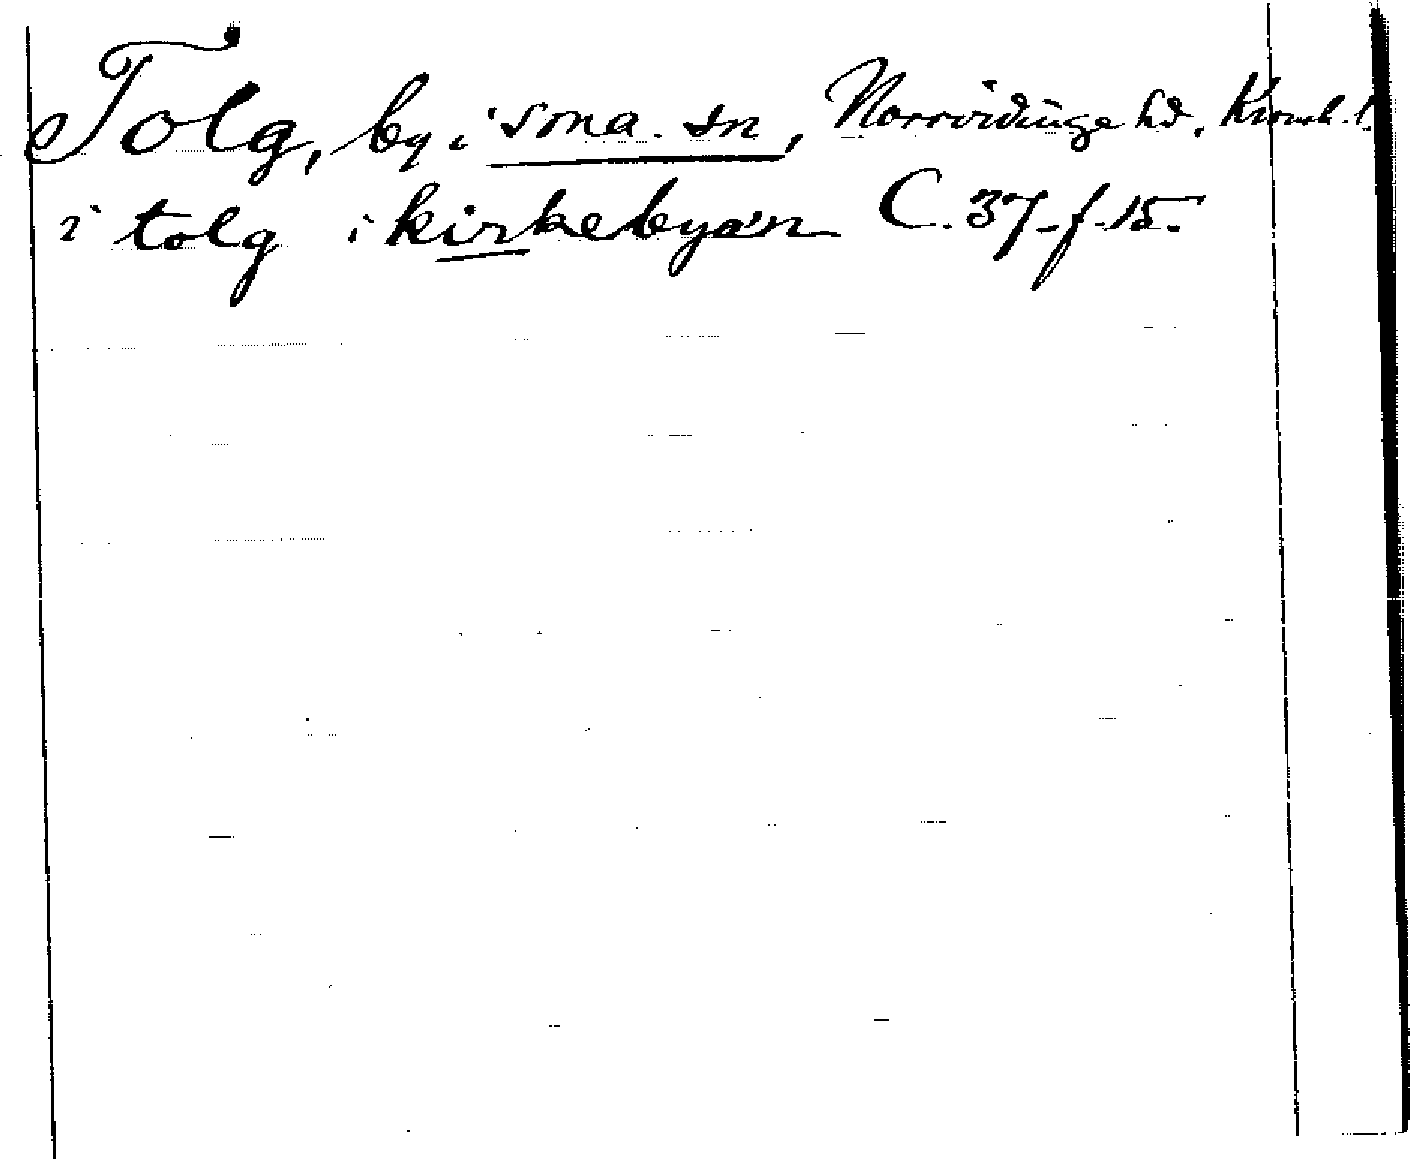 Tolg, by i sma. sn, Norrvidinge hd, Kronob. l.
i tolg i kirkebyæn C. 37-f-15.